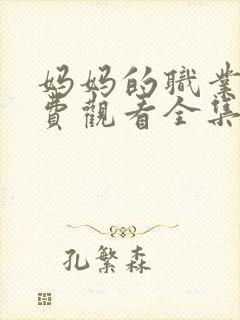 妈妈的職業
費觀看全集
孔繁森